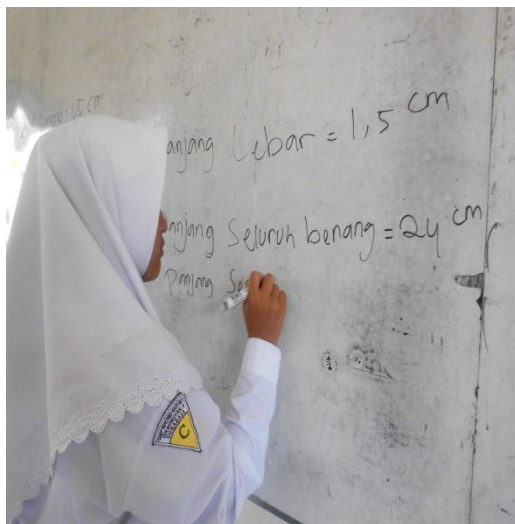 1,5 cm
anjang Lebar = 1,5 cm
anjang Seluruh benang = 24 cm
panjang Se
C